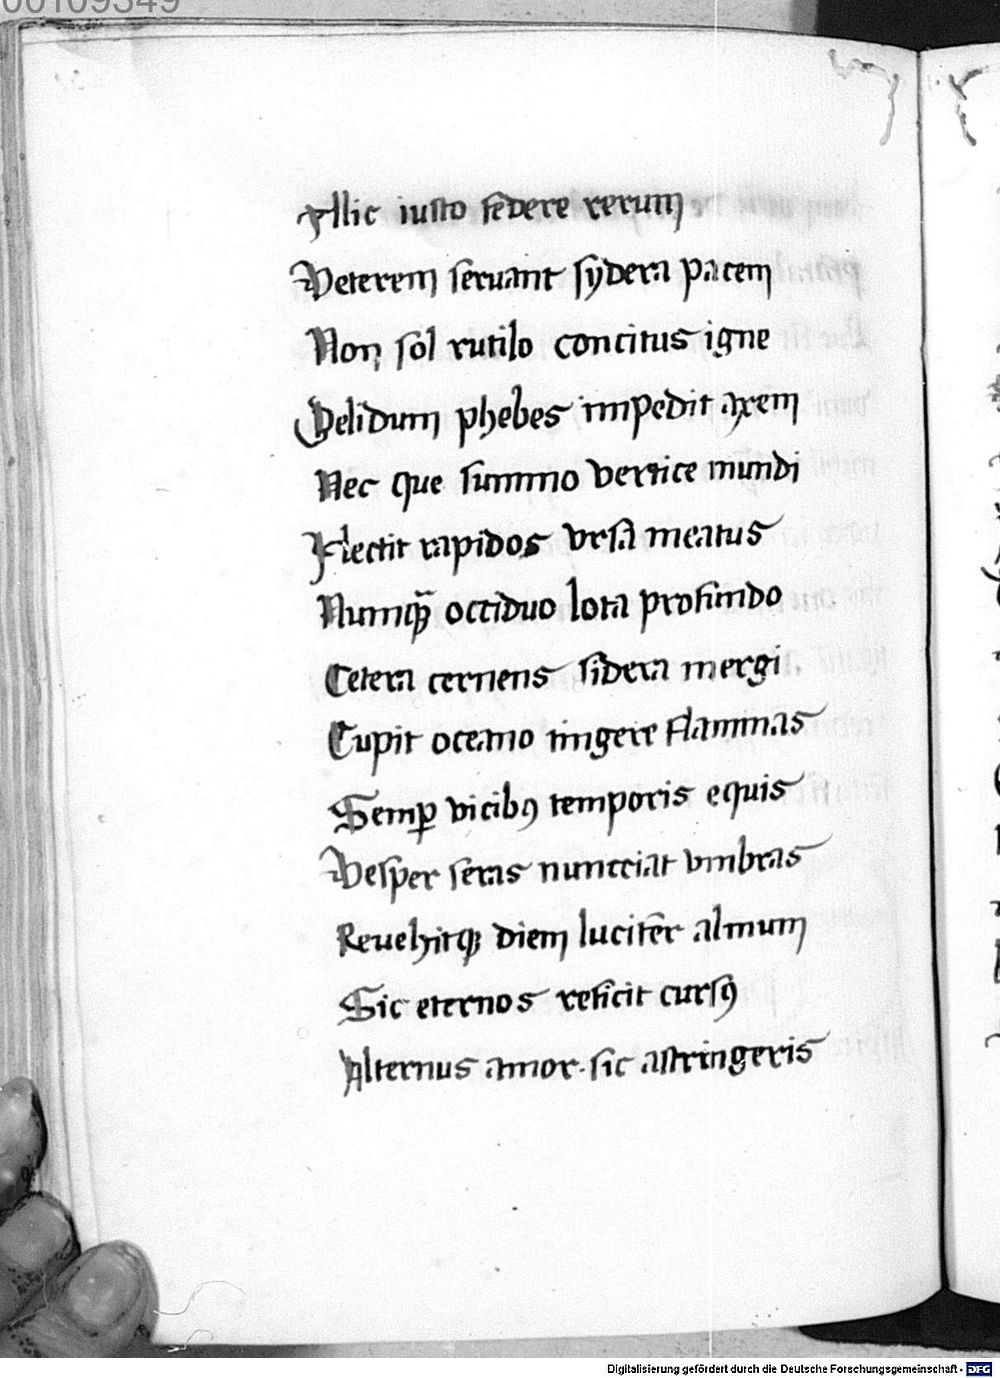 00109349
Illic iusto federe rerum
Veterem seruant sydera pacem
Non sol rutilo concitus igne
Gelidum phebes impedit axem
Nec que summo vertice mundi
Flectit rapidos vrsa meatus
Numqꝫ occiduo lota profundo
Cetera cernens sidera mergi
Cupit oceano tingere flammas
Semꝑ vicibꝰ temporis equis
Vesper seras nuncciat vmbras
Reuehitqꝫ diem lucifer almum
Sic eternos reficit cursꝰ
Alternus amor. sic astringeris
Digitalisierung gefördert durch die Deutsche Forschungsgemeinschaft - DFG